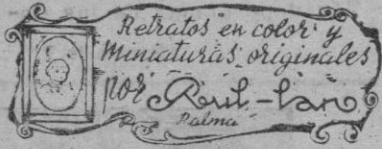 Retratos en color y
miniaturas originales
por Rul-lan
Palma